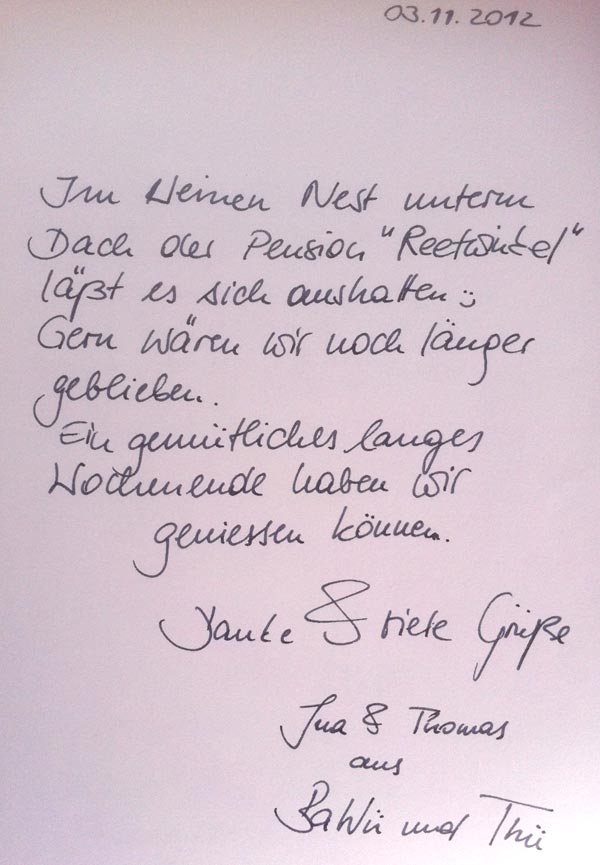 03.11.2012
Im kleinen Nest unterm
Dach der Pension "Reetwinkel"
läßt es sich aushalten :)
Gern wären wir noch länger
geblieben.
Ein gemütliches langes
Wochenende haben wir
geniessen können.
Danke & viele Grüße
Ina & Thomas
aus
BaWü und Thü